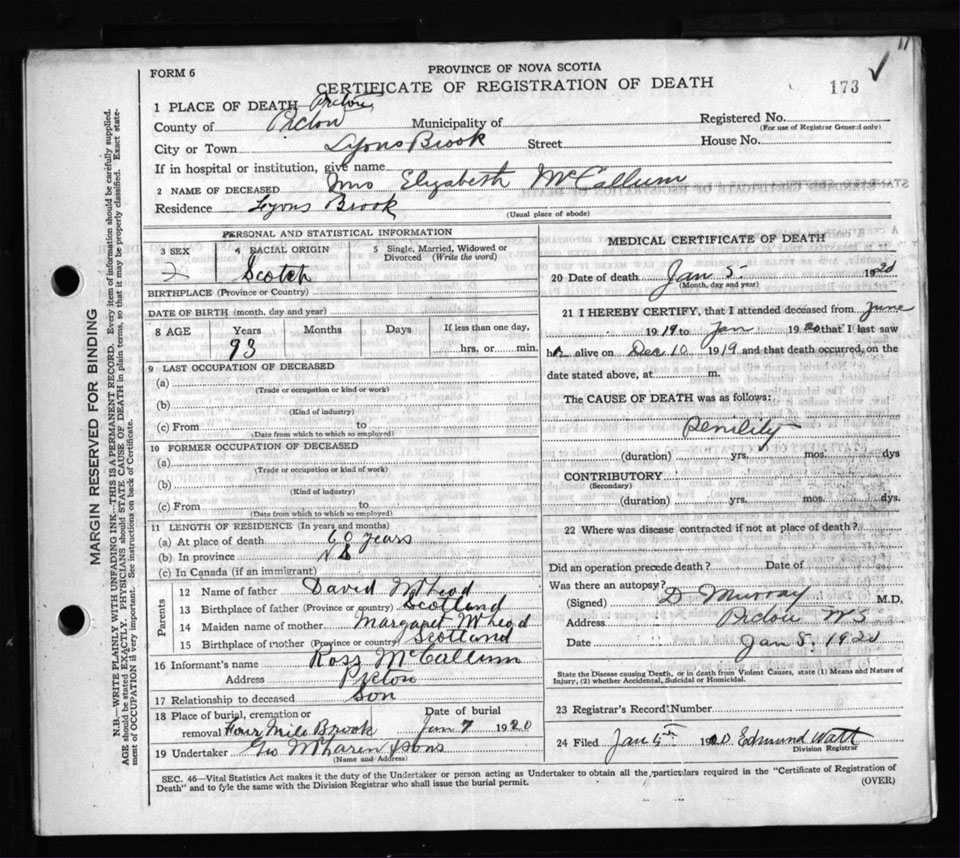 11
FORM 6
PROVINCE OF NOVA SCOTIA
CERTIFICATE OF REGISTRATION OF DEATH
173 ✓
1 PLACE OF DEATH Pictou
County of Pictou Municipality of Registered No.
(For use of Registrar General only)
City or Town Lyons Brook Street House No.
If in hospital or institution, give name
2 NAME OF DECEASED Mrs Elizabeth McCallum
Residence Lyons Brook
(Usual place of abode)
PERSONAL AND STATISTICAL INFORMATION
3 SEX 4 RACIAL ORIGIN 5 Single, Married, Widowed or Divorced (Write the word)
Scotch
BIRTHPLACE (Province or Country)
DATE OF BIRTH (month, day and year)
8 AGE Years Months Days If less than one day,
93 hrs. or min.
9 LAST OCCUPATION OF DECEASED
(a)
(Trade or occupation or kind of work)
(b)
(Kind of industry)
(c) From to
(Date from which to which so employed)
10 FORMER OCCUPATION OF DECEASED
(a)
(Trade or occupation or kind of work)
(b)
(Kind of industry)
(c) From to
(Date from which to which so employed)
11 LENGTH OF RESIDENCE (In years and months)
(a) At place of death 60 years
(b) In province N S
(c) In Canada (if an immigrant)
Parents
12 Name of father David McLeod
13 Birthplace of father (Province or country) Scotland
14 Maiden name of mother Margaret McLeod
15 Birthplace of mother (Province or country) Scotland
16 Informant's name Ross McCallum
Address Pictou
17 Relationship to deceased Son
18 Place of burial, cremation or Date of burial
removal Four Mile Brook Jan 7 1920
19 Undertaker Geo McLaren & Sons
(Name and Address)
MEDICAL CERTIFICATE OF DEATH
20 Date of death Jan 5 1920
(Month, day and year)
21 I HEREBY CERTIFY, that I attended deceased from June
1919 to Jan 1920 that I last saw
her alive on Dec 10 1919 and that death occurred, on the
date stated above, at m.
The CAUSE OF DEATH was as follows:
Senility
(duration) yrs. mos. dys
CONTRIBUTORY
(Secondary)
(duration) yrs. mos. dys.
22 Where was disease contracted if not at place of death?
Did an operation precede death? Date of
Was there an autopsy?
(Signed) D Murray M.D.
Address Pictou NS
Date Jan 8. 1920
State the Disease causing Death, or in death from Violent Causes, state (1) Means and Nature of
Injury, (2) whether Accidental, Suicidal or Homicidal.
23 Registrar's Record Number
24 Filed Jan 1920 Edmund Watt
Division Registrar
SEC. 46—Vital Statistics Act makes it the duty of the Undertaker or person acting as Undertaker to obtain all the particulars required in the "Certificate of Registration of
Death" and to fyle the same with the Division Registrar who shall issue the burial permit. (OVER)
MARGIN RESERVED FOR BINDING
N.B.—WRITE PLAINLY WITH UNFADING INK—THIS IS A PERMANENT RECORD. Every item of information should be carefully supplied.
AGE should be stated EXACTLY. PHYSICIANS should STATE CAUSE OF DEATH in plain terms, so that it may be properly classified. Exact state-
ment of OCCUPATION is very important. See instructions on back of Certificate.